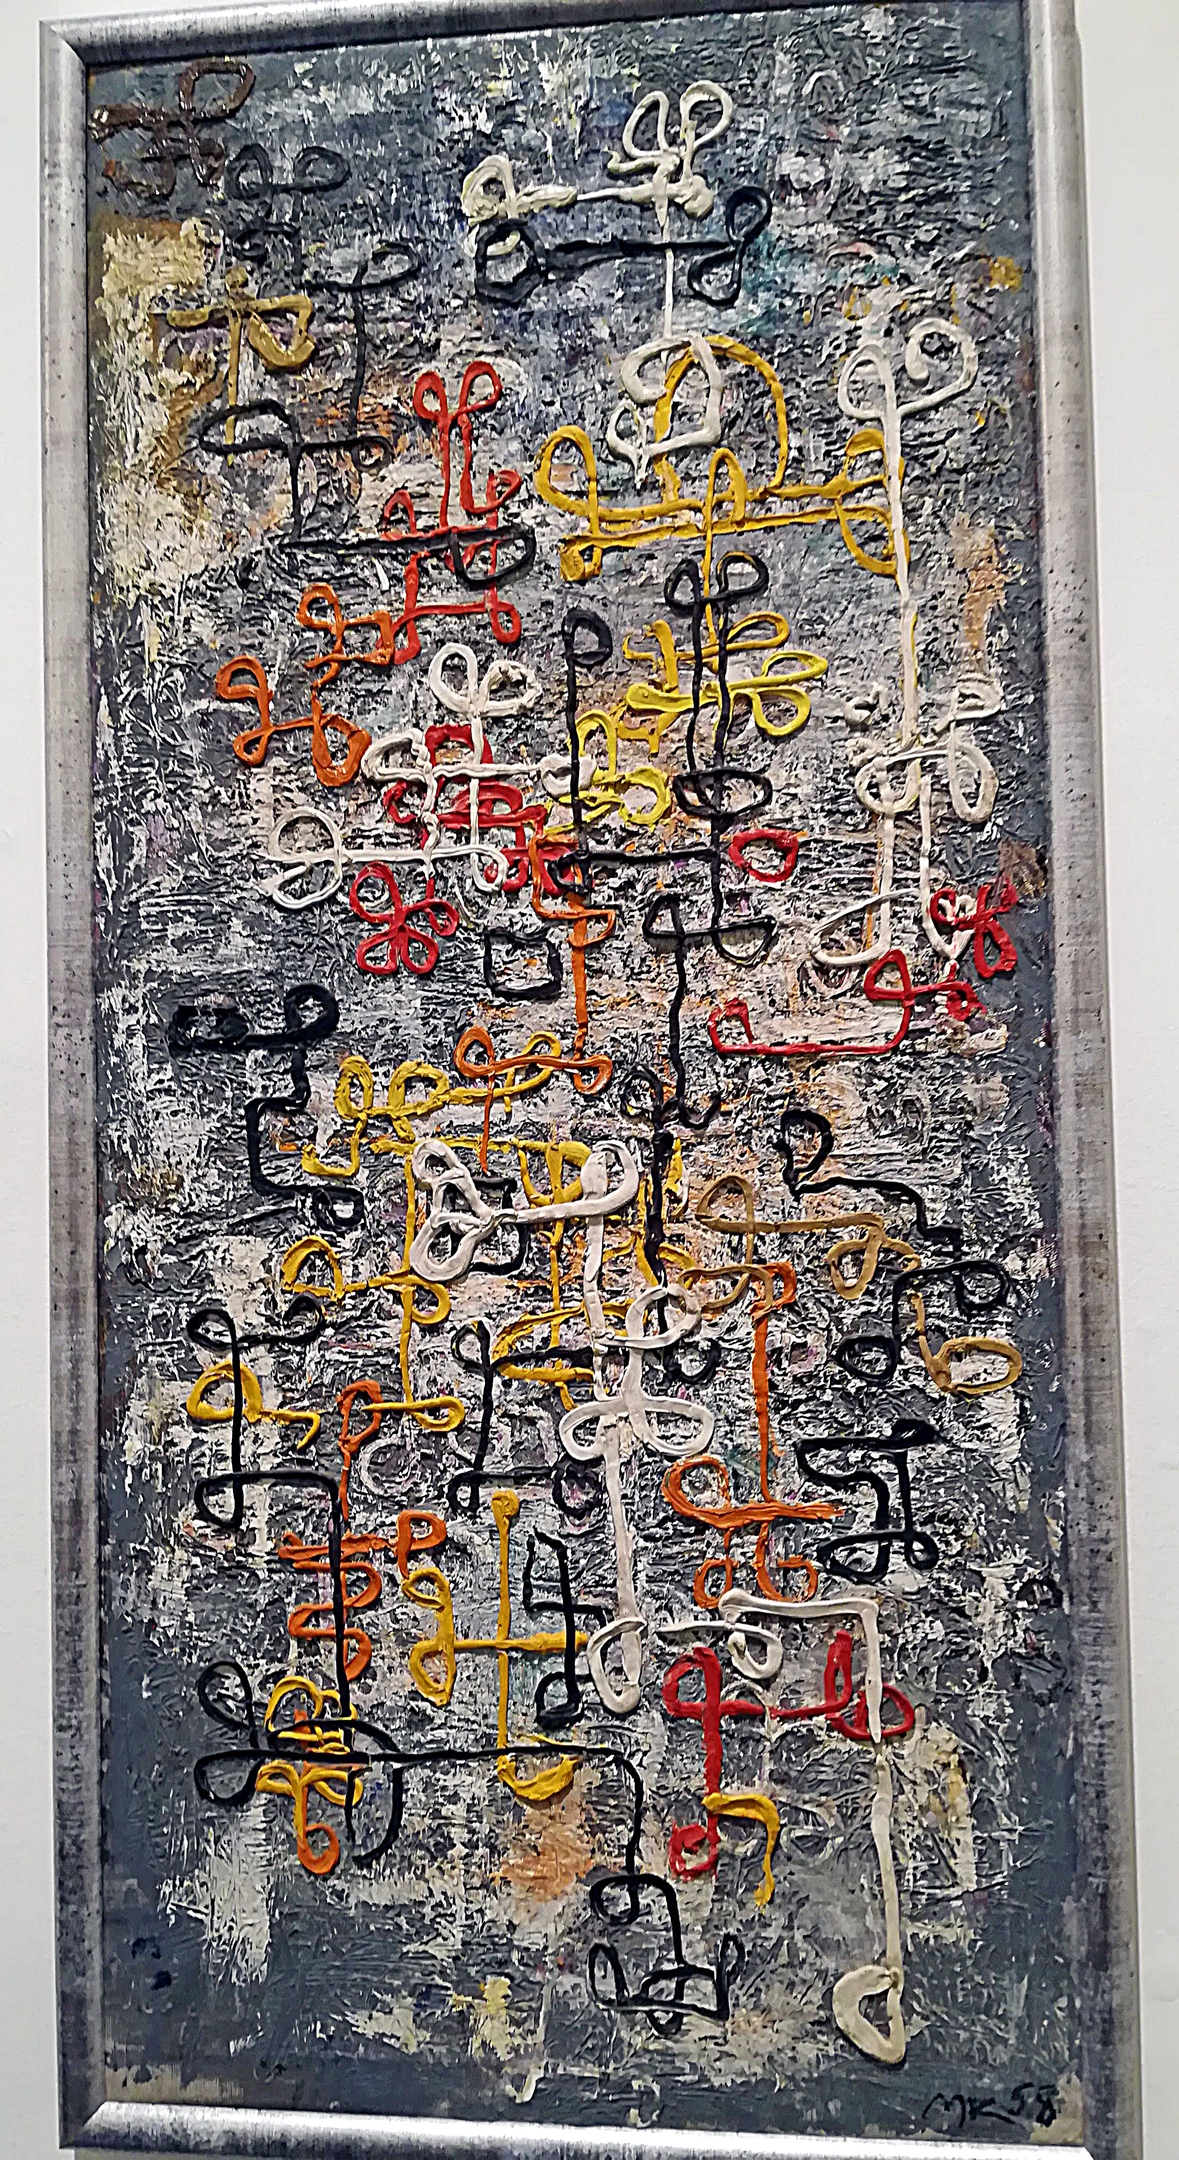 MK 58